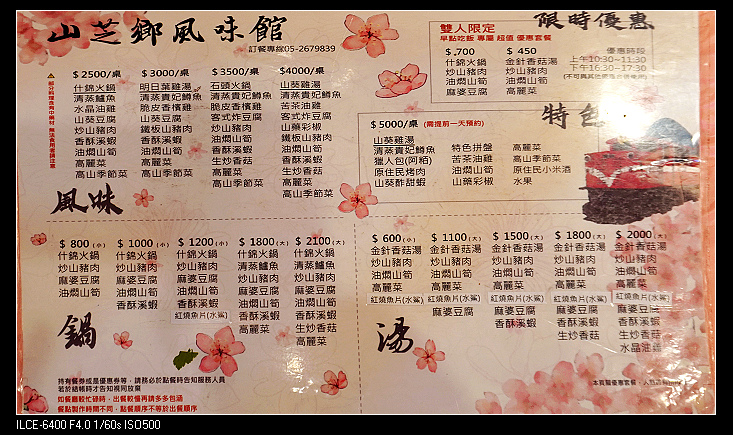 山芝鄉風味館
訂餐專線05-2679839
$2500/桌
什錦火鍋
清蒸鱸魚
水晶油雞
山葵豆腐
炒山豬肉
香酥溪蝦
油燜山筍
高麗菜
高山季節菜
$3000/桌
明日葉雞湯
清蒸貴妃鱒魚
脆皮香檳雞
山葵豆腐
鐵板山豬肉
香酥溪蝦
油燜山筍
高麗菜
高山季節菜
$3500/桌
石頭火鍋
清蒸貴妃鱒魚
脆皮香檳雞
客式炸豆腐
炒山豬肉
油燜山筍
香酥溪蝦
生炒香菇
高麗菜
高山季節菜
$4000/桌
山葵雞湯
清蒸貴妃鱒魚
苦茶油雞
客式炸豆腐
山藥彩椒
鐵板山豬肉
油燜山筍
香酥溪蝦
生炒香菇
高麗菜
高山季節菜
風味
雙人限定
早點吃飯 專屬 超值 優惠套餐
限時優惠
$700
什錦火鍋
炒山豬肉
油燜山筍
麻婆豆腐
$450
金針香菇湯
炒山豬肉
油燜山筍
高麗菜
優惠時段
上午10:30~11:30
下午16:30~17:30
特色
$5000/桌 (需提前一天預約)
山葵雞湯
清蒸貴妃鱒魚
獵人包(阿粨)
原住民烤肉
山葵酢甜蝦
特色拼盤
苦茶油雞
油燜山筍
山藥彩椒
高麗菜
高山季節菜
原住民小米酒
水果
鍋
$800(小)
什錦火鍋
炒山豬肉
麻婆豆腐
油燜山筍
$1000(小)
什錦火鍋
炒山豬肉
麻婆豆腐
油燜山筍
香酥溪蝦
$1200(小)
什錦火鍋
炒山豬肉
麻婆豆腐
油燜山筍
香酥溪蝦
紅燒魚片(水鯊)
$1800(大)
什錦火鍋
清蒸鱸魚
炒山豬肉
麻婆豆腐
油燜山筍
香酥溪蝦
高麗菜
$2100(大)
什錦火鍋
清蒸鱸魚
炒山豬肉
麻婆豆腐
油燜山筍
香酥溪蝦
生炒香菇
高麗菜
湯
$600(小)
金針香菇湯
炒山豬肉
油燜山筍
高麗菜
紅燒魚片(水鯊)
$1100(大)
金針香菇湯
炒山豬肉
油燜山筍
高麗菜
紅燒魚片(水鯊)
麻婆豆腐
$1500(大)
金針香菇湯
炒山豬肉
油燜山筍
高麗菜
紅燒魚片(水鯊)
麻婆豆腐
香酥溪蝦
$1800(大)
金針香菇湯
炒山豬肉
油燜山筍
高麗菜
紅燒魚片(水鯊)
麻婆豆腐
香酥溪蝦
生炒香菇
$2000(大)
金針香菇湯
炒山豬肉
油燜山筍
高麗菜
紅燒魚片(水鯊)
麻婆豆腐
香酥溪蝦
生炒香菇
水晶油雞
持有餐券或是優惠券等，請務必於點餐時告知服務人員
若於結帳時才告知視同放棄
如餐廳較忙碌時，出餐較慢再請多多包涵
餐點製作時間不同，點餐順序不等於出餐順序
ILCE-6400 F4.0 1/60s ISO500